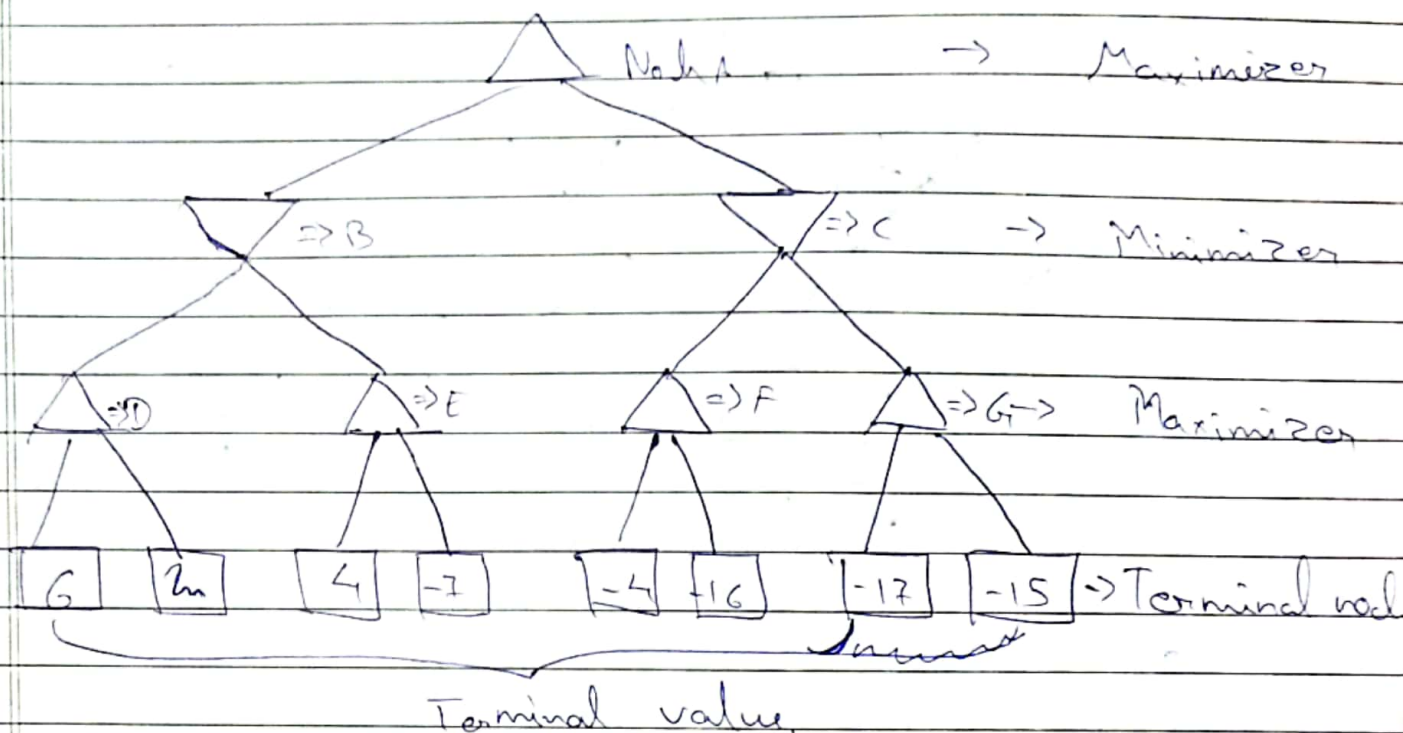 Node A. → Maximizer
⇒ B ⇒ C → Minimizer
⇒ D ⇒ E ⇒ F ⇒ G → Maximizer
4 -7 -4 -16 -17 -15 → Terminal nod
Terminal value